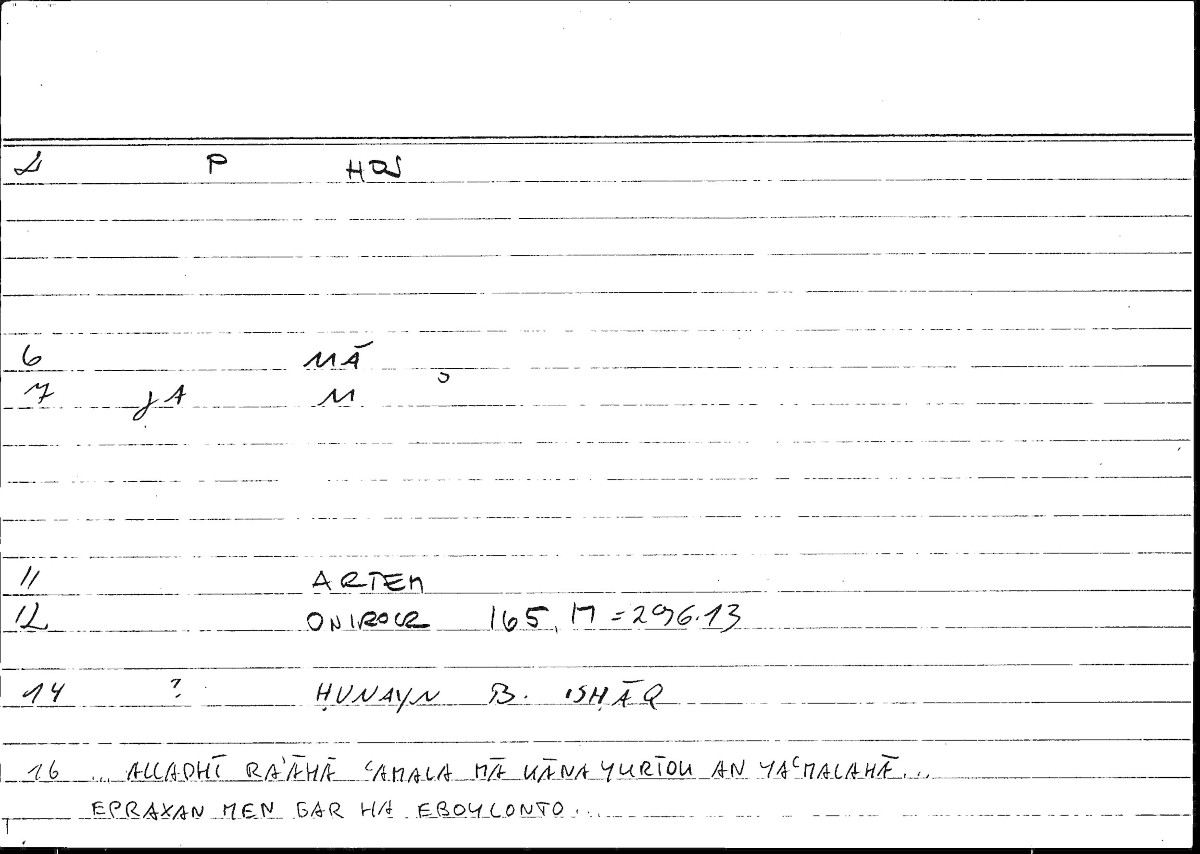 P HDS
6 MĀ
7 JA M
11 ARTEM
12 ONIROCR 165, 17 = 296.13
14 ? ḤUNAYN B. ISḤĀQ
16 ... ALLADHĪ RA'ĀHĀ ʿAMALA MĀ KĀNA YURĪDU AN YAʿMALAHĀ...
EPRAXAN MEN GAR HA EBOYLONTO...